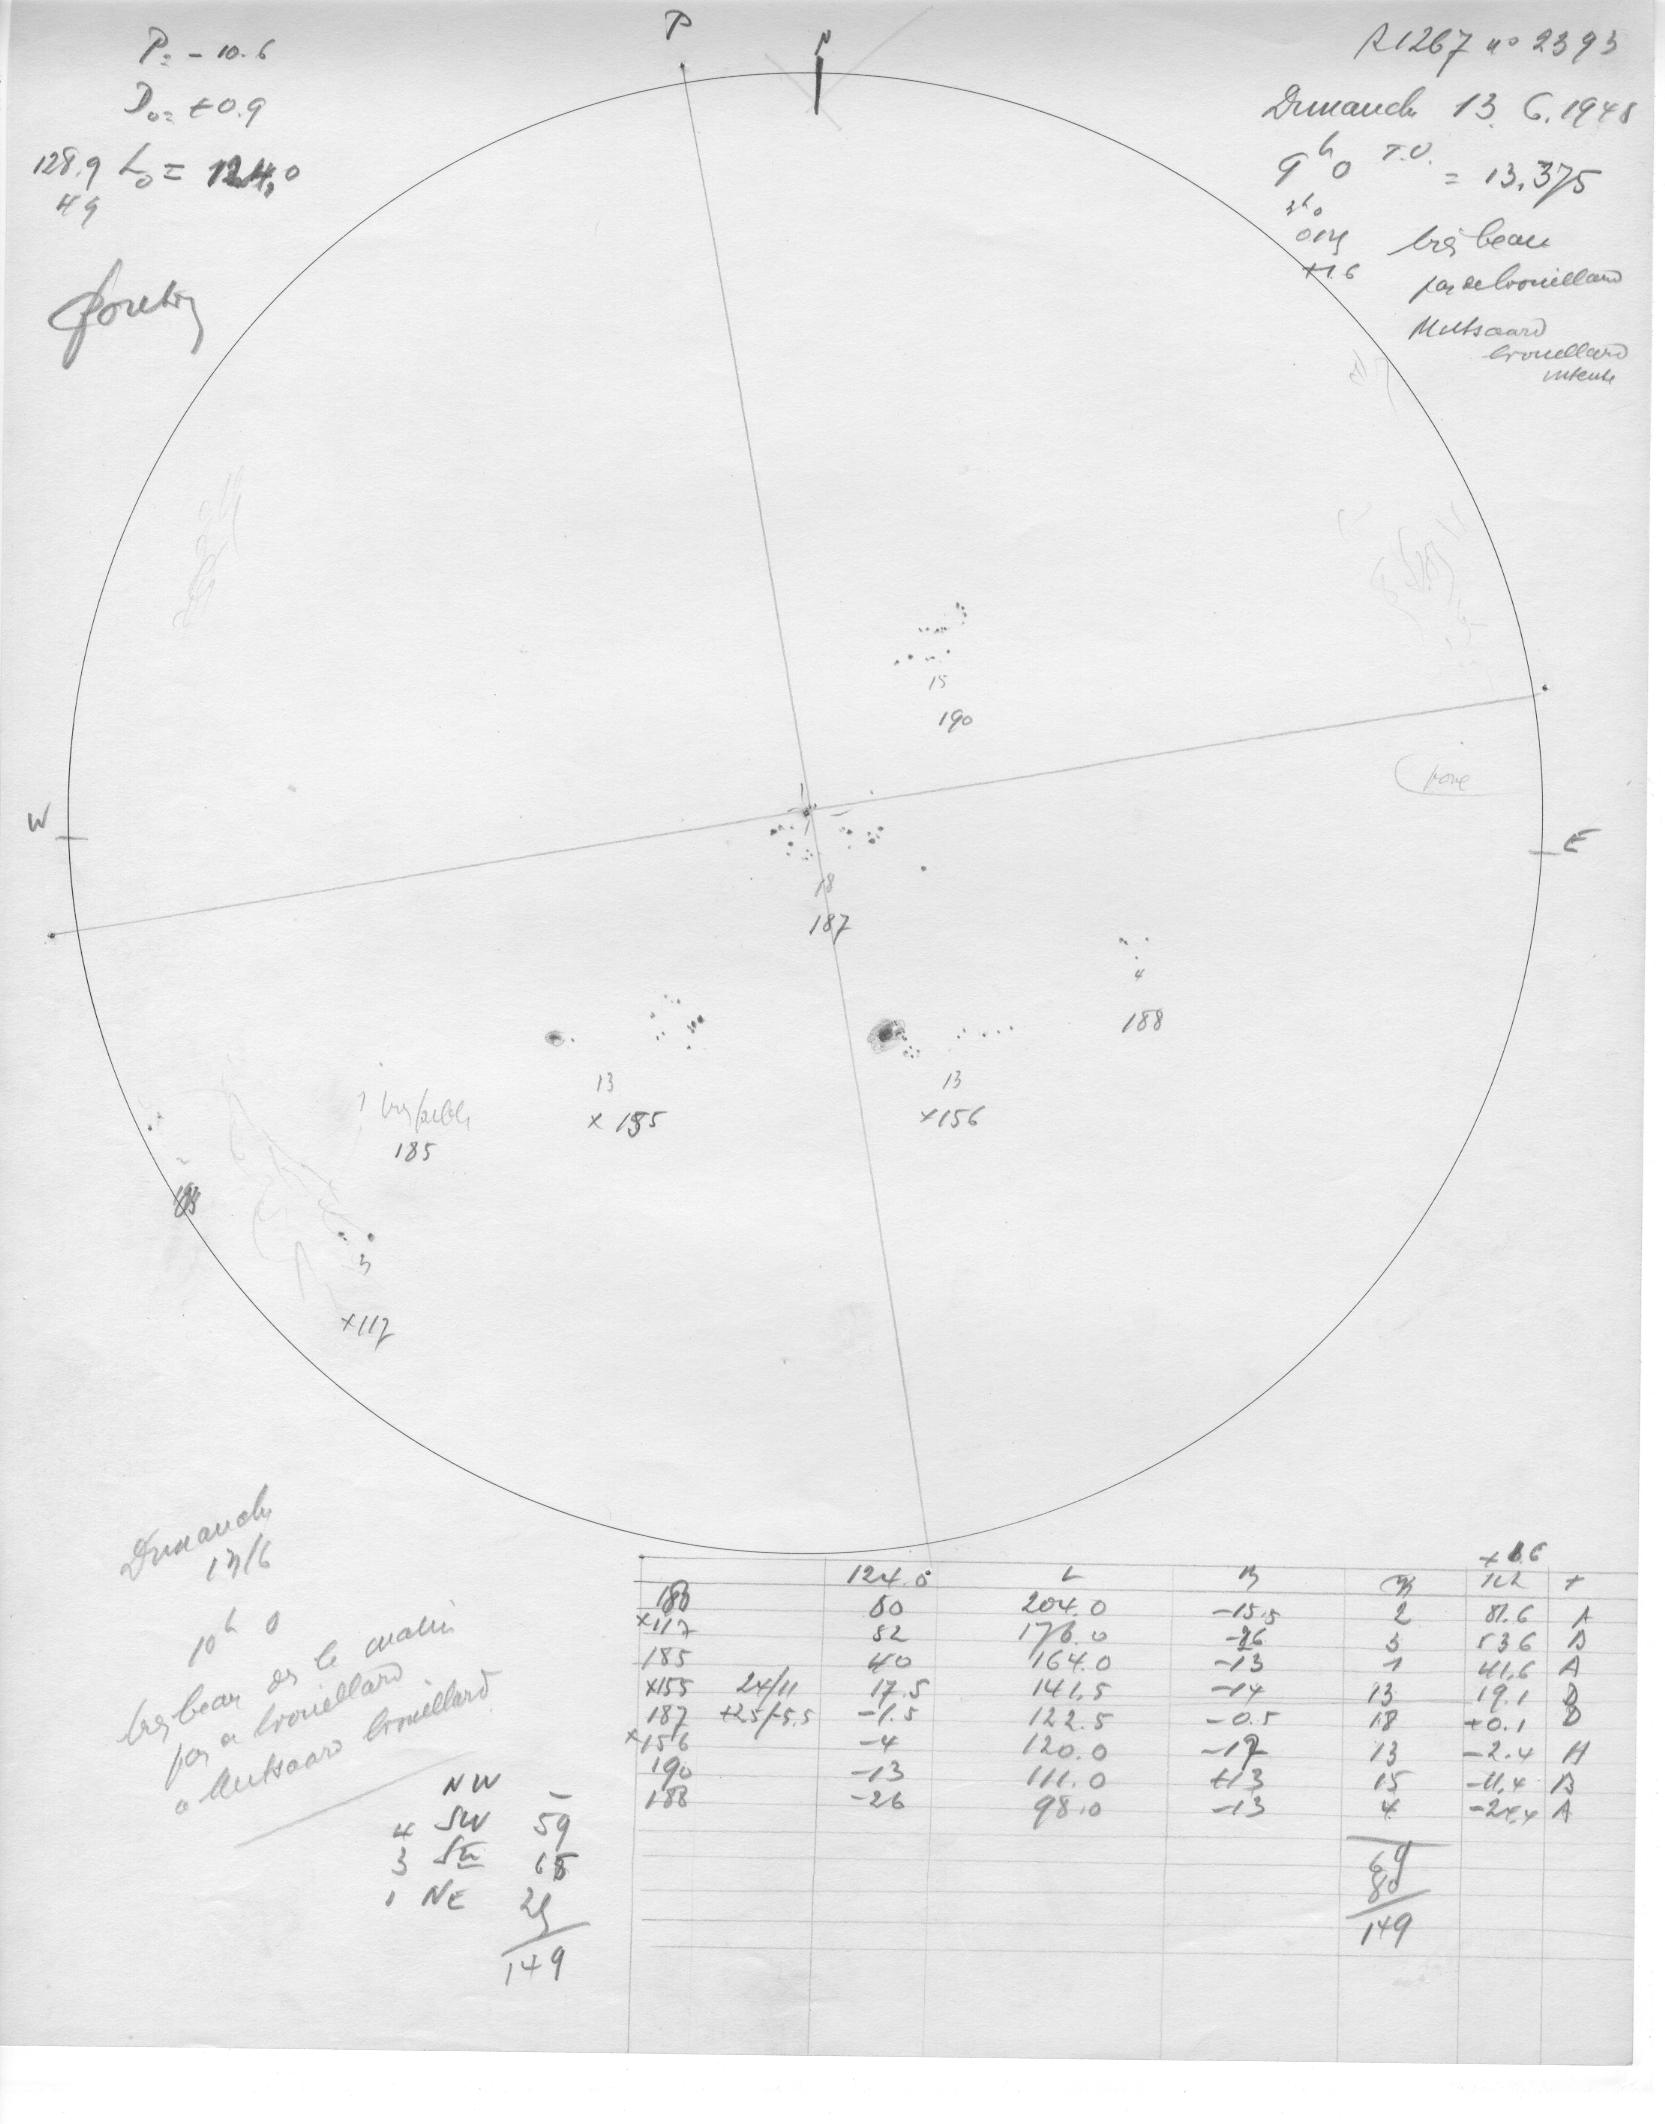 P
N
P= -10.6
D₀= +0.9
128.9 L₀ = 124.0
4 9
R1267 nº 2393
Dimanche 13.6.1948
9h0 T.U. = 13.375
3h0
très beau
+1.6
pas de brouillard
Mutsaard
brouillard
intense
15
190
W
E
18
187
4
188
13
x 155
13
x156
1 très faible
185
3
x117
Dimanche
13/6
10h 0
très beau dès le matin
pas de brouillard
a Mutsaard brouillard
NW –
4 SW 59
3 SE
1 NE 25
149
+1.6
124.0 L B
80 204.0 -15.5 2 81.6 A
x117 52 176.0 -26 3 53.6 B
185 40 164.0 -13 1 41.6 A
x155 24/11 17.5 141.5 -14 13 19.1 D
187 +2.5/-5.5 -1.5 122.5 -0.5 18 +0.1 D
x156 -4 120.0 13 -2.4 H
190 -13 111.0 +13 15 -11.4 B
188 -26 98.0 -13 4 -24.4 A
69
80
149